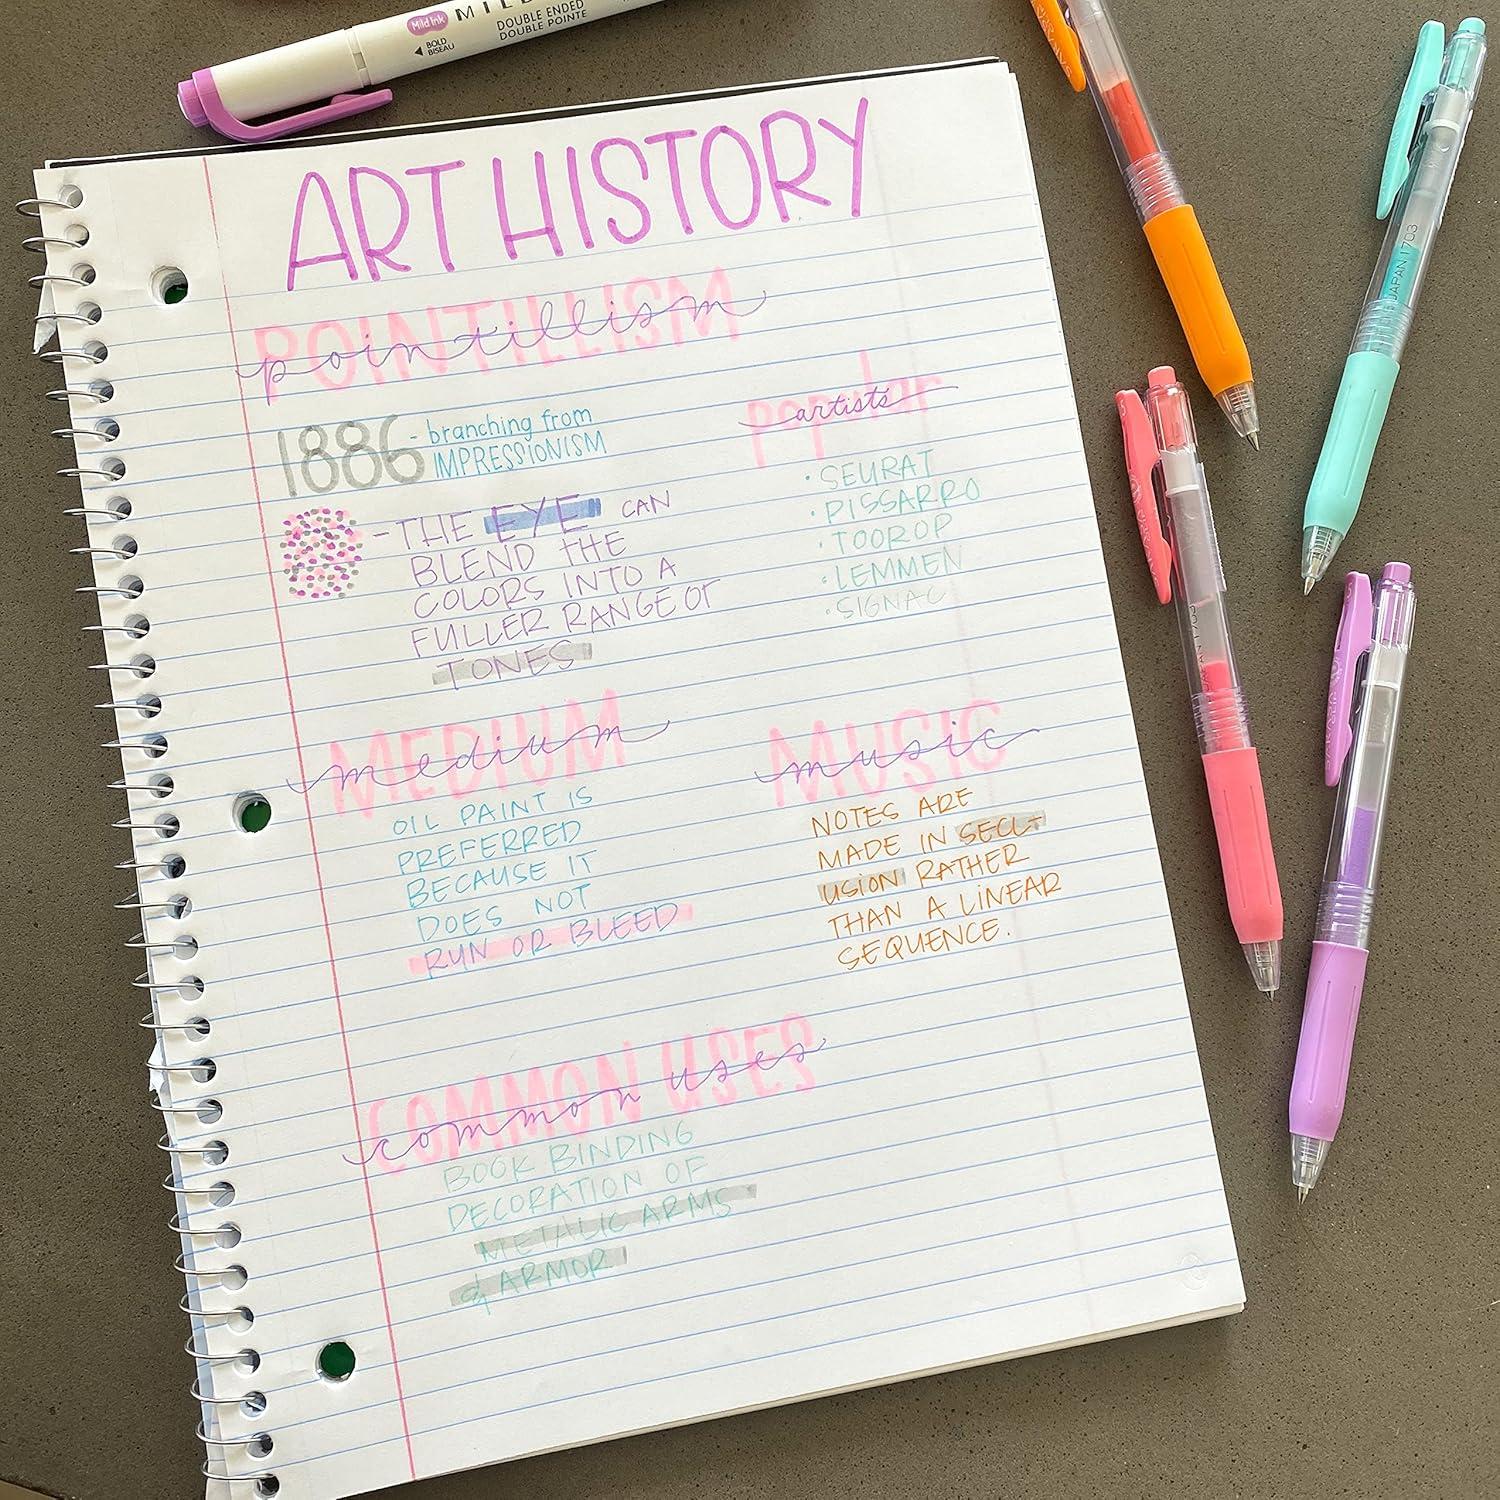 Mild Ink MILD
DOUBLE ENDED
DOUBLE POINTE
BOLD
BISEAU
ART HISTORY
POINTILLISM
pointillism
1886 - branching from
IMPRESSIONISM
- THE EYE CAN
BLEND THE
COLORS INTO A
FULLER RANGE OF
TONES
popular
artists
• SEURAT
• PISSARRO
• TOOROP
• LEMMEN
• SIGNAC
MEDIUM
medium
OIL PAINT IS
PREFERRED
BECAUSE IT
DOES NOT
RUN OR BLEED
MUSIC
music
NOTES ARE
MADE IN SECL-
USION RATHER
THAN A LINEAR
SEQUENCE.
COMMON USES
common uses
BOOK BINDING
DECORATION OF
METALIC ARMS
& ARMOR
JAPAN 1703